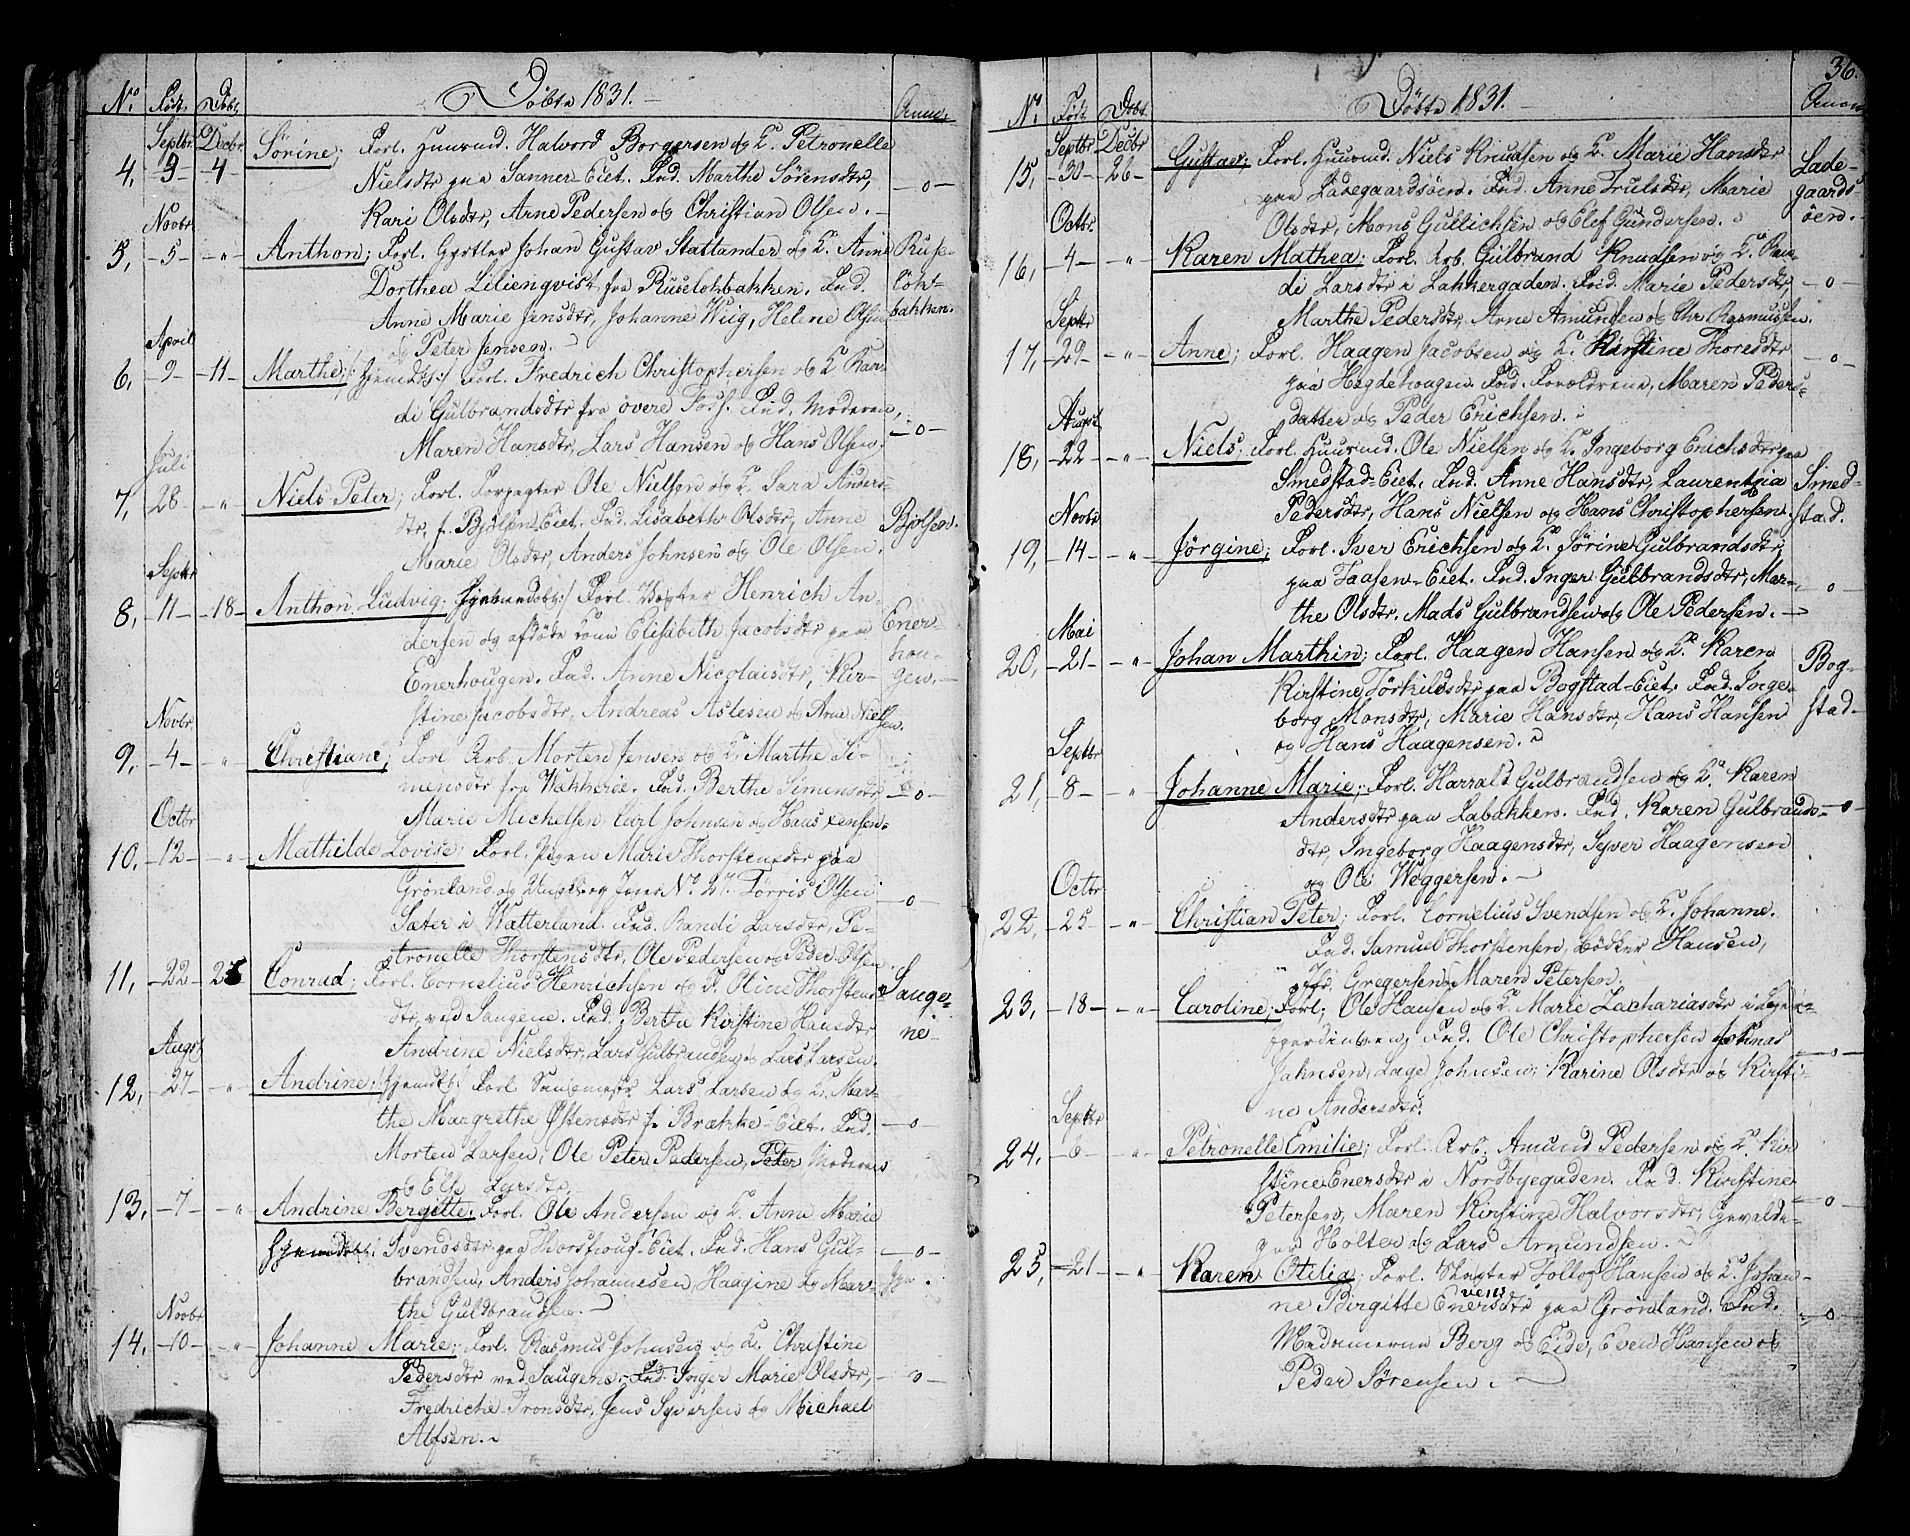 No. Föd. Döbt. Döbte 1831. Anm:
Septbr Decbr
4, 9 4 Sörine; Forl. Huusmd. Halvord Borgersen og K. Petronelle
Nielsdtr paa Sanner-Eiet. Fad. Marthe Sörensdtr, —o—
Kari Olsdtr, Arne Pedersen og Christian Olsen.
Novbr
5, 5 " Anthon; Forl. Gjörtler Johan Gustav Stattlander og K. Anne Ruse-
Dorthea Liliengvist fra Ruselökbakken. Fad. lök-
Anne Marie Jensdtr, Johanne Wiig, Helene Olsen bakken.
og Peter Jensen.
April
6, 9 11 Marthe; /: hjemdt: / Forl. Fredrich Christophersen og K. Ran-
di Gulbrandsdtr fra övere Foss. Fad. Moderen,
Maren Hansdtr, Lars Hansen og Hans Olsen. —o—
Juli
7, 28 " Niels Peter; Forl. Forpagter Ole Nielsen og K. Sara Anders-
dtr, f. Bjölsen Eiet. Fad. Lisabeth Olsdtr, Anne Bjölsen.
Marie Olsdtr, Anders Johnsen og Ole Olsen.
Septbr
8, 11 18 Anthon Ludvig; hjemdöbt: / Forl. Vægter Henrich An-
dersen og afdöde Kone Elisabeth Jacobsdtr paa Ener-
Enerhougen. Fad. Anne Nicolaisdtr, Kir- hou-
stine Jacobsdtr, Andreas Aslesen og Arne Nielsen. gen.
Novbr
9, 4 " Christiane; Forl. Arb. Morten Jensen og K. Marthe Si-
mensdtr fra Wakkerøe. Fad. Berthe Simensdtr, —o—
Marie Michelsen, Carl Johnsen og Hans Jensen.
Octbr
10, 12 " Mathilde Lovise; Forl. Pigen Marie Thorstensdtr paa
Grönland og Ungk. og Jæger No. 27 Törris Olsen
Sæter i Watterland. Fad. Randi Larsdtr, Pe- —o—
tronelle Thorstensdtr, Ole Pedersen og Peder Olsen.
11, 22 26 Conrad; Forl. Cornelius Henrichsen og K. Oline Thorstens- Sauge-
dtr ved Saugene. Fad. Bertha Kirstine Hansdtr ne
Andrine Nielsdtr, Lars Gulbrandsen og Lars Larsen.
Augst
12, 27 " Andrine; /: hjemdt: / Forl. Saugmestr Lars Larsen og K. Mar-
the Margrethe Östensdtr f. Brække-Eiet. Fad. —o—
Morten Larsen, Ole Peter Pedersen, Peter Moderens
og Else Larsdtr.
13, 7 " Andrine Bergitte; Forl. Ole Andersen og K. Anne Marie
hjemdöbt: / Svendsdtr paa Thorshoug-Eiet. Fad. Hans Gul- —o—
brandsen, Anders Johannesen, Haagine og Mar-
the Guldbrandsen.
Novbr
14, 10 " Johanne Marie; Forl. Rasmus Johnsen og K. Christine
Pedersdtr ved Saugene. Fad. Inger Marie Olsdtr, —o—
Fredriche Tronsdtr, Jens Syversen og Michael
Alfsen.
36.
No. Föd. Döbt. Döbte 1831. Anm
Septbr Decbr
15, 30 26 Gustav; Forl. Huusmd. Niels Knudsen og K. Marie Hansdtr Lade-
paa Ladegaardsöen. Fad. Anne Trulsdtr, Marie gaards
Olsdtr, Mons Gullichsen og Elef Gundersen. öen.
Octbr
16, 4 " Karen Mathea; Forl. Arb. Gulbrand Knudsen og K. Ran-
di Larsdtr i Lakkergaden. Fad. Marie Pedersdtr, —o—
Marthe Pedersdtr, Arne Amundsen og Chr. Rasmussen.
Septbr
17, 29 " Anne; Forl. Haagen Jacobsen og K. Kirstine Thoresdtr —o—
paa Hegdehougen. Fad. Forældrene, Maren Peders-
datter og Peder Erichsen.
Augst
18, 22 " Niels; Forl. Huusmd. Ole Nielsen og K. Ingeborg Erichsdtr paa
Smedstad-Eiet. Fad. Anne Hansdtr, Laurentzia Smed-
Pedersdtr, Hans Nielsen og Hans Christophersen. stad.
Novbr
19, 14 " Jörgine; Forl. Iver Erichsen og K. Sörine Gulbrandsdtr
paa Taasen-Eiet. Fad. Inger Gulbrandsdtr, Mar- —o—
the Olsdtr, Mads Gulbrandsen og Ole Pedersen.
Mai
20, 21 " Johan Marthin; Forl. Haagen Hansen og K. Karen Bog-
Kirstine Törkildsdtr paa Bogstad-Eiet. Fad. Inge-
borg Monsdtr, Marie Hansdtr, Hans Hansen stad
og Hans Haagensen.
Septbr
21, 8 " Johanne Marie; Forl. Harrald Gulbrandsen og K. Karen
Andersdtr paa Labakken. Fad. Karen Gulbrands- —o—
dtr, Ingeborg Haagensdtr, Syver Haagensen
og Ole Weggersen.
Octbr
22, 25 " Christian Peter; Forl. Cornelius Svendsen og K. Johanne.
Fad. Samuel Thorstensen, Bödker Hansen,
Gregersen, Maren Petersen.
23, 18 " Caroline; Forl. Ole Hansen og K. Marie Zachariasdtr i
Fad. Ole Christophersen, Jonas
Jahnsen, Lage Johnsen, Karine Olsdtr og Kirsti- —o—
ne Andersdtr.
Septbr
24, 6 " Petronelle Emilie; Forl. Arb. Amund Pedersen og K. Kir
stine Enersdtr i Nordbyegaden. Fad. Kirstine
Petersen, Maren Kirstine Halvorsdtr, Gevalde- —o—
ger Holter og Lars Amundsen.
25, 21 " Karen Otilia; Forl. Slagter Tollof Hansen og K. Johan-
ne Birgitte Evensdtr paa Grönland. Fad. —o—
Madamerne Berg og Eide, Even Hansen og
Peder Sörensen.